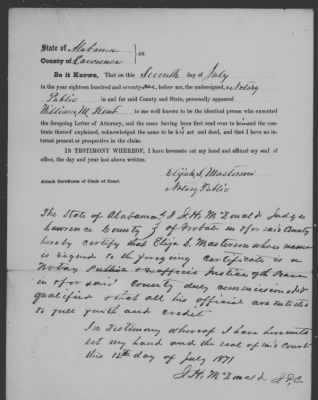 State of Alabama } ss.
County of Lawrence
Be it Known, That on this Seventh day of July
in the year eighteen hundred and seventy-one, before me, the undersigned, a Notary
Public in and for said County and State, personally appeared
William M. Kent to me well known to be the identical person who executed
the foregoing Letter of Attorney, and the same having been first read over to him and the con-
tents thereof explained, acknowledged the same to be his act and deed, and that I have no in-
terest present or prospective in the claim.
IN TESTIMONY WHEREOF, I have hereunto set my hand and affixed my seal of
office, the day and year last above written.
Elijah S. Masterson
Attach Certificate of Clerk of Court
Notary Public
The State of Alabama } I J. H. McDonald Judge
Lawrence County } of Probate in & for said County
hereby certify that Elija S. Masterson whose name
is signed to the foregoing certificate is a
Notary Public & exofficio Justice of the Peace
in & for said County duly commissioned &
qualified & that all his official are entitled
to full faith and credit
In Testimony whereof I have hereunto
set my hand and the seal of said Court
this 12th day of July 1871
J. H. McDonald J.P.C.